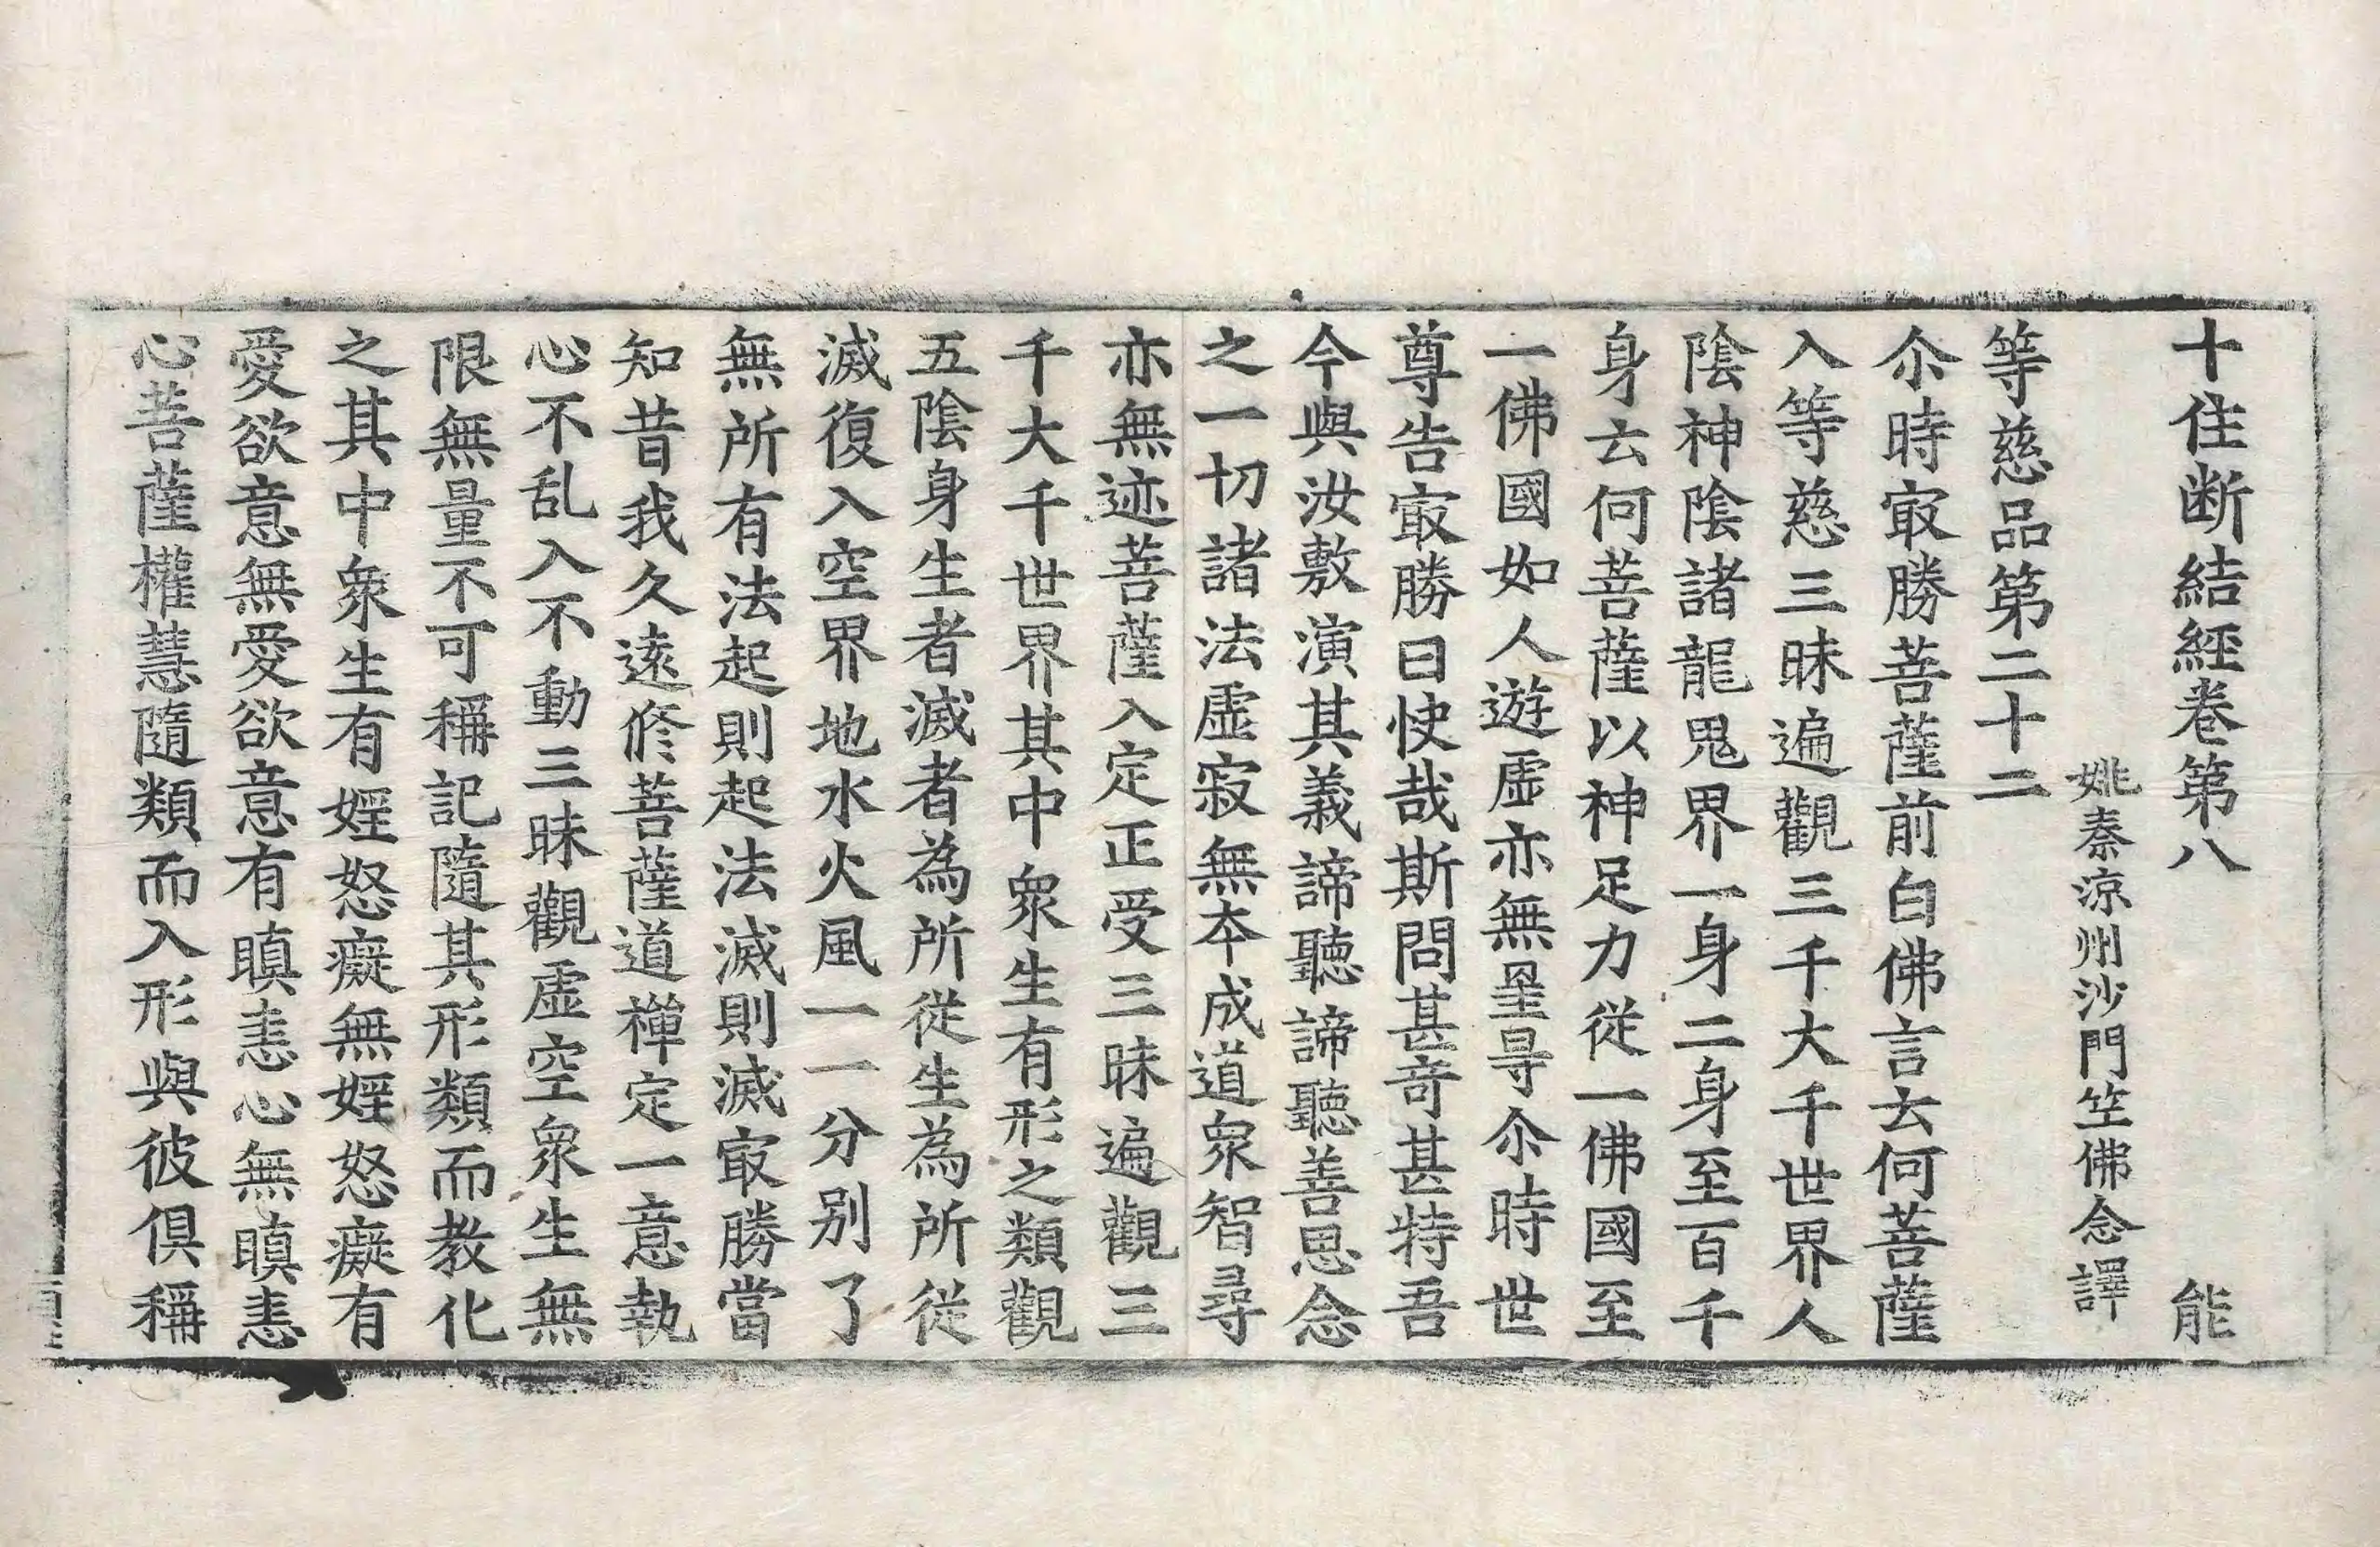 十住断結經卷第八 能
姚秦涼州沙門竺佛念譯
等慈品第二十二
尒時㝡勝菩薩前白佛言云何菩薩
入等慈三昧遍觀三千大千世界人
陰神陰諸龍鬼界一身二身至百千
身云何菩薩以神足力從一佛國至
一佛國如人遊虛亦無罣㝵尒時世
尊告㝡勝曰快哉斯問甚奇甚特吾
今與汝敷演其義諦聽諦聽善思念
之一切諸法虛寂無本成道衆智尋
亦無迹菩薩入定正受三昧遍觀三
千大千世界其中衆生有形之類觀
五陰身生者滅者為所從生為所從
滅復入空界地水火風一一分別了
無所有法起則起法滅則滅㝡勝當
知昔我久遠修菩薩道禪定一意執
心不乱入不動三昧觀虛空衆生無
限無量不可稱記隨其形類而教化
之其中衆生有婬怒癡無婬怒癡有
愛欲意無愛欲意有瞋恚心無瞋恚
心菩薩權慧隨類而入形與彼俱稱